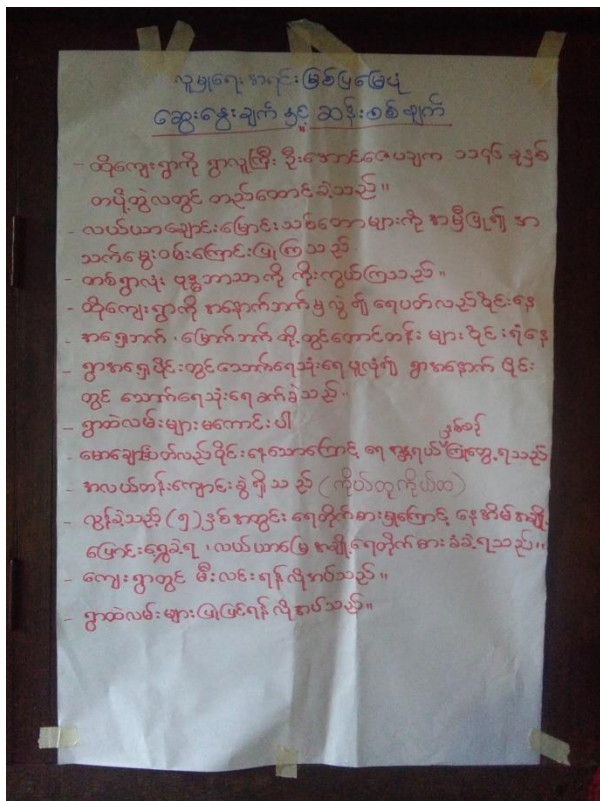 လူမှုရေးအရင်းမြစ်ပြမြေပုံ
ဆွေးနွေးချက် နှင့် ဆန်းစစ်ချက်
- ထိုကျေးရွာကို ရွာလူကြီး ဦးအောင်ဇေပချက ၁၁၄၆ ခုနှစ်
တပို့တွဲလတွင် တည်ထောင်ခဲ့သည်။
- လယ်ယာချောင်းမြောင်းသစ်တောများကို အမှီပြု၍ အ
သက်မွေးဝမ်းကြောင်းပြုကြသည်
- တစ်ရွာလုံး ဗုဒ္ဓဘာသာကို ကိုးကွယ်ကြသည်။
- ထိုကျေးရွာကို အနောက်ဘက်မှလွဲ၍ ရေပတ်လည်ဝိုင်းနေ
- အရှေ့ဘက်၊ မြောက်ဘက် တို့တွင်တောင်တန်း များဝိုင်းရံနေ
- ရွာအရှေ့ပိုင်းတွင်သောက်ရေသုံးရေပူလုံ၍ ရွာအနောက် ပိုင်း
တွင် သောက်ရေသုံးရေခက်ခဲသည်။
- ရွာထဲလမ်းများမကောင်းပါ
- ပတ်လည်ဝိုင်းနေသောကြောင့် ရေအန္တရာယ် နှစ်စဉ် ကြုံတွေ့ရသည်
- အလယ်တန်းကျောင်းခွဲရှိသည် (ကိုယ်ထူကိုယ်ထ)
- လွန်ခဲ့သည့် (၅) နှစ်အတွင်း ရေတိုက်စားမှုကြောင့် နေအိမ်အချို့
ပြောင်းရွှေ့ခဲ့ရ ၊ လယ်ယာမြေအချို့ရေတိုက်စားခံခဲ့ရသည်။
- ကျေးရွာတွင် မီးလင်းရန်လိုအပ်သည်။
- ရွာထဲလမ်းများပြုပြင်ရန်လိုအပ်သည်။